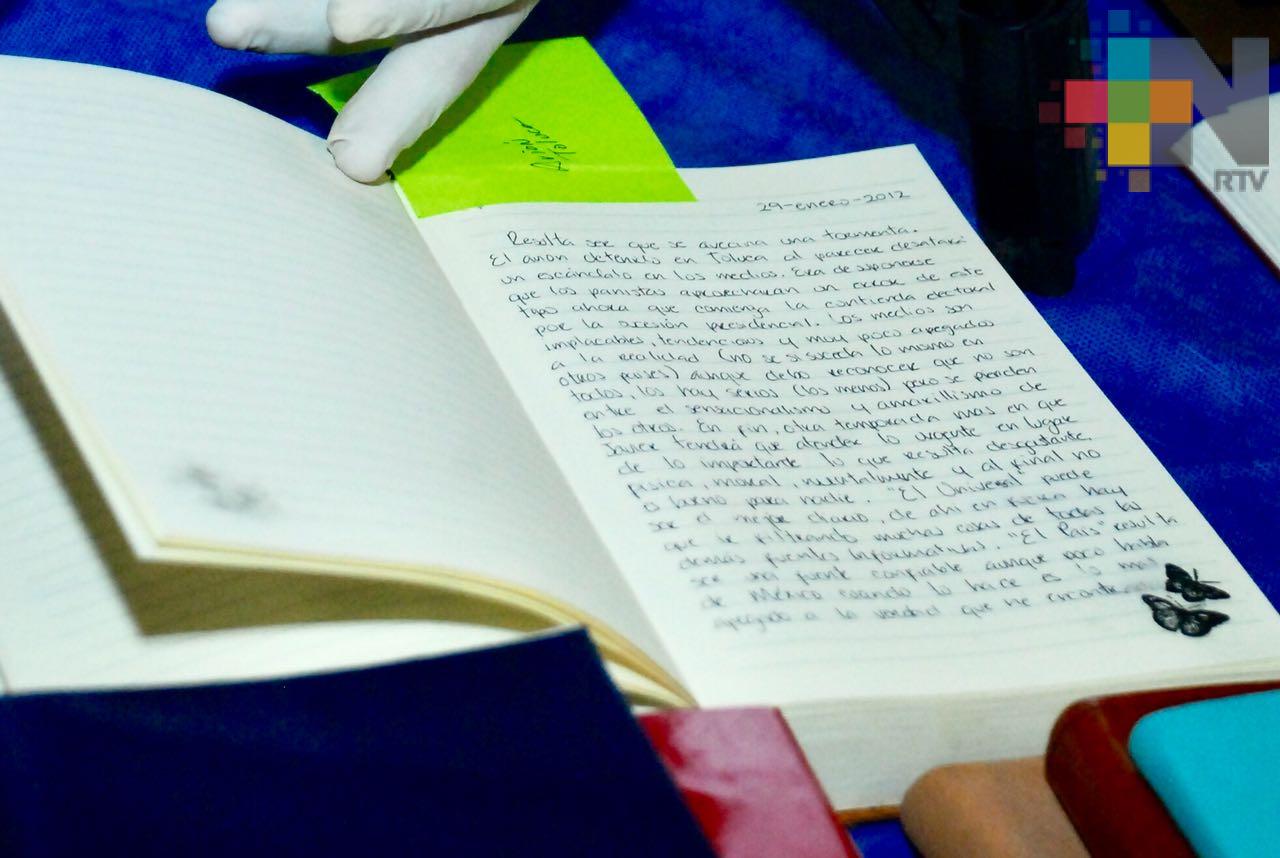 N
RTV
Avión
Toluca
29-enero-2012
Resulta ser que se avecina una tormenta.
El avión detenido en Toluca al parecer desatará
un escándalo en los medios. Era de suponerse
que los panistas aprovecharan un error de este
tipo ahora que comienza la contienda electoral
por la sucesión presidencial. Los medios son
implacables, tendenciosos y muy poco apegados
a la realidad (no se si suceda lo mismo en
otros países) aunque debo reconocer que no son
todos, los hay serios (los menos) pero se pierden
entre el sensacionalismo y amarillismo de
los otros. En fin, otra temporada mas en que
Javier tendrá que atender lo urgente en lugar
de lo importante lo que resulta desgastante,
física, moral, mentalmente y al final no
es bueno para nadie. "El Universal" puede
ser el mejor diario, de ahí en fuera hay
que ir filtrando muchas cosas de todas las
demás fuentes informativas. "El País" resulta
ser una fuente confiable aunque poco habla
de México cuando lo hace es lo mas
apegado a la verdad que he encontrado